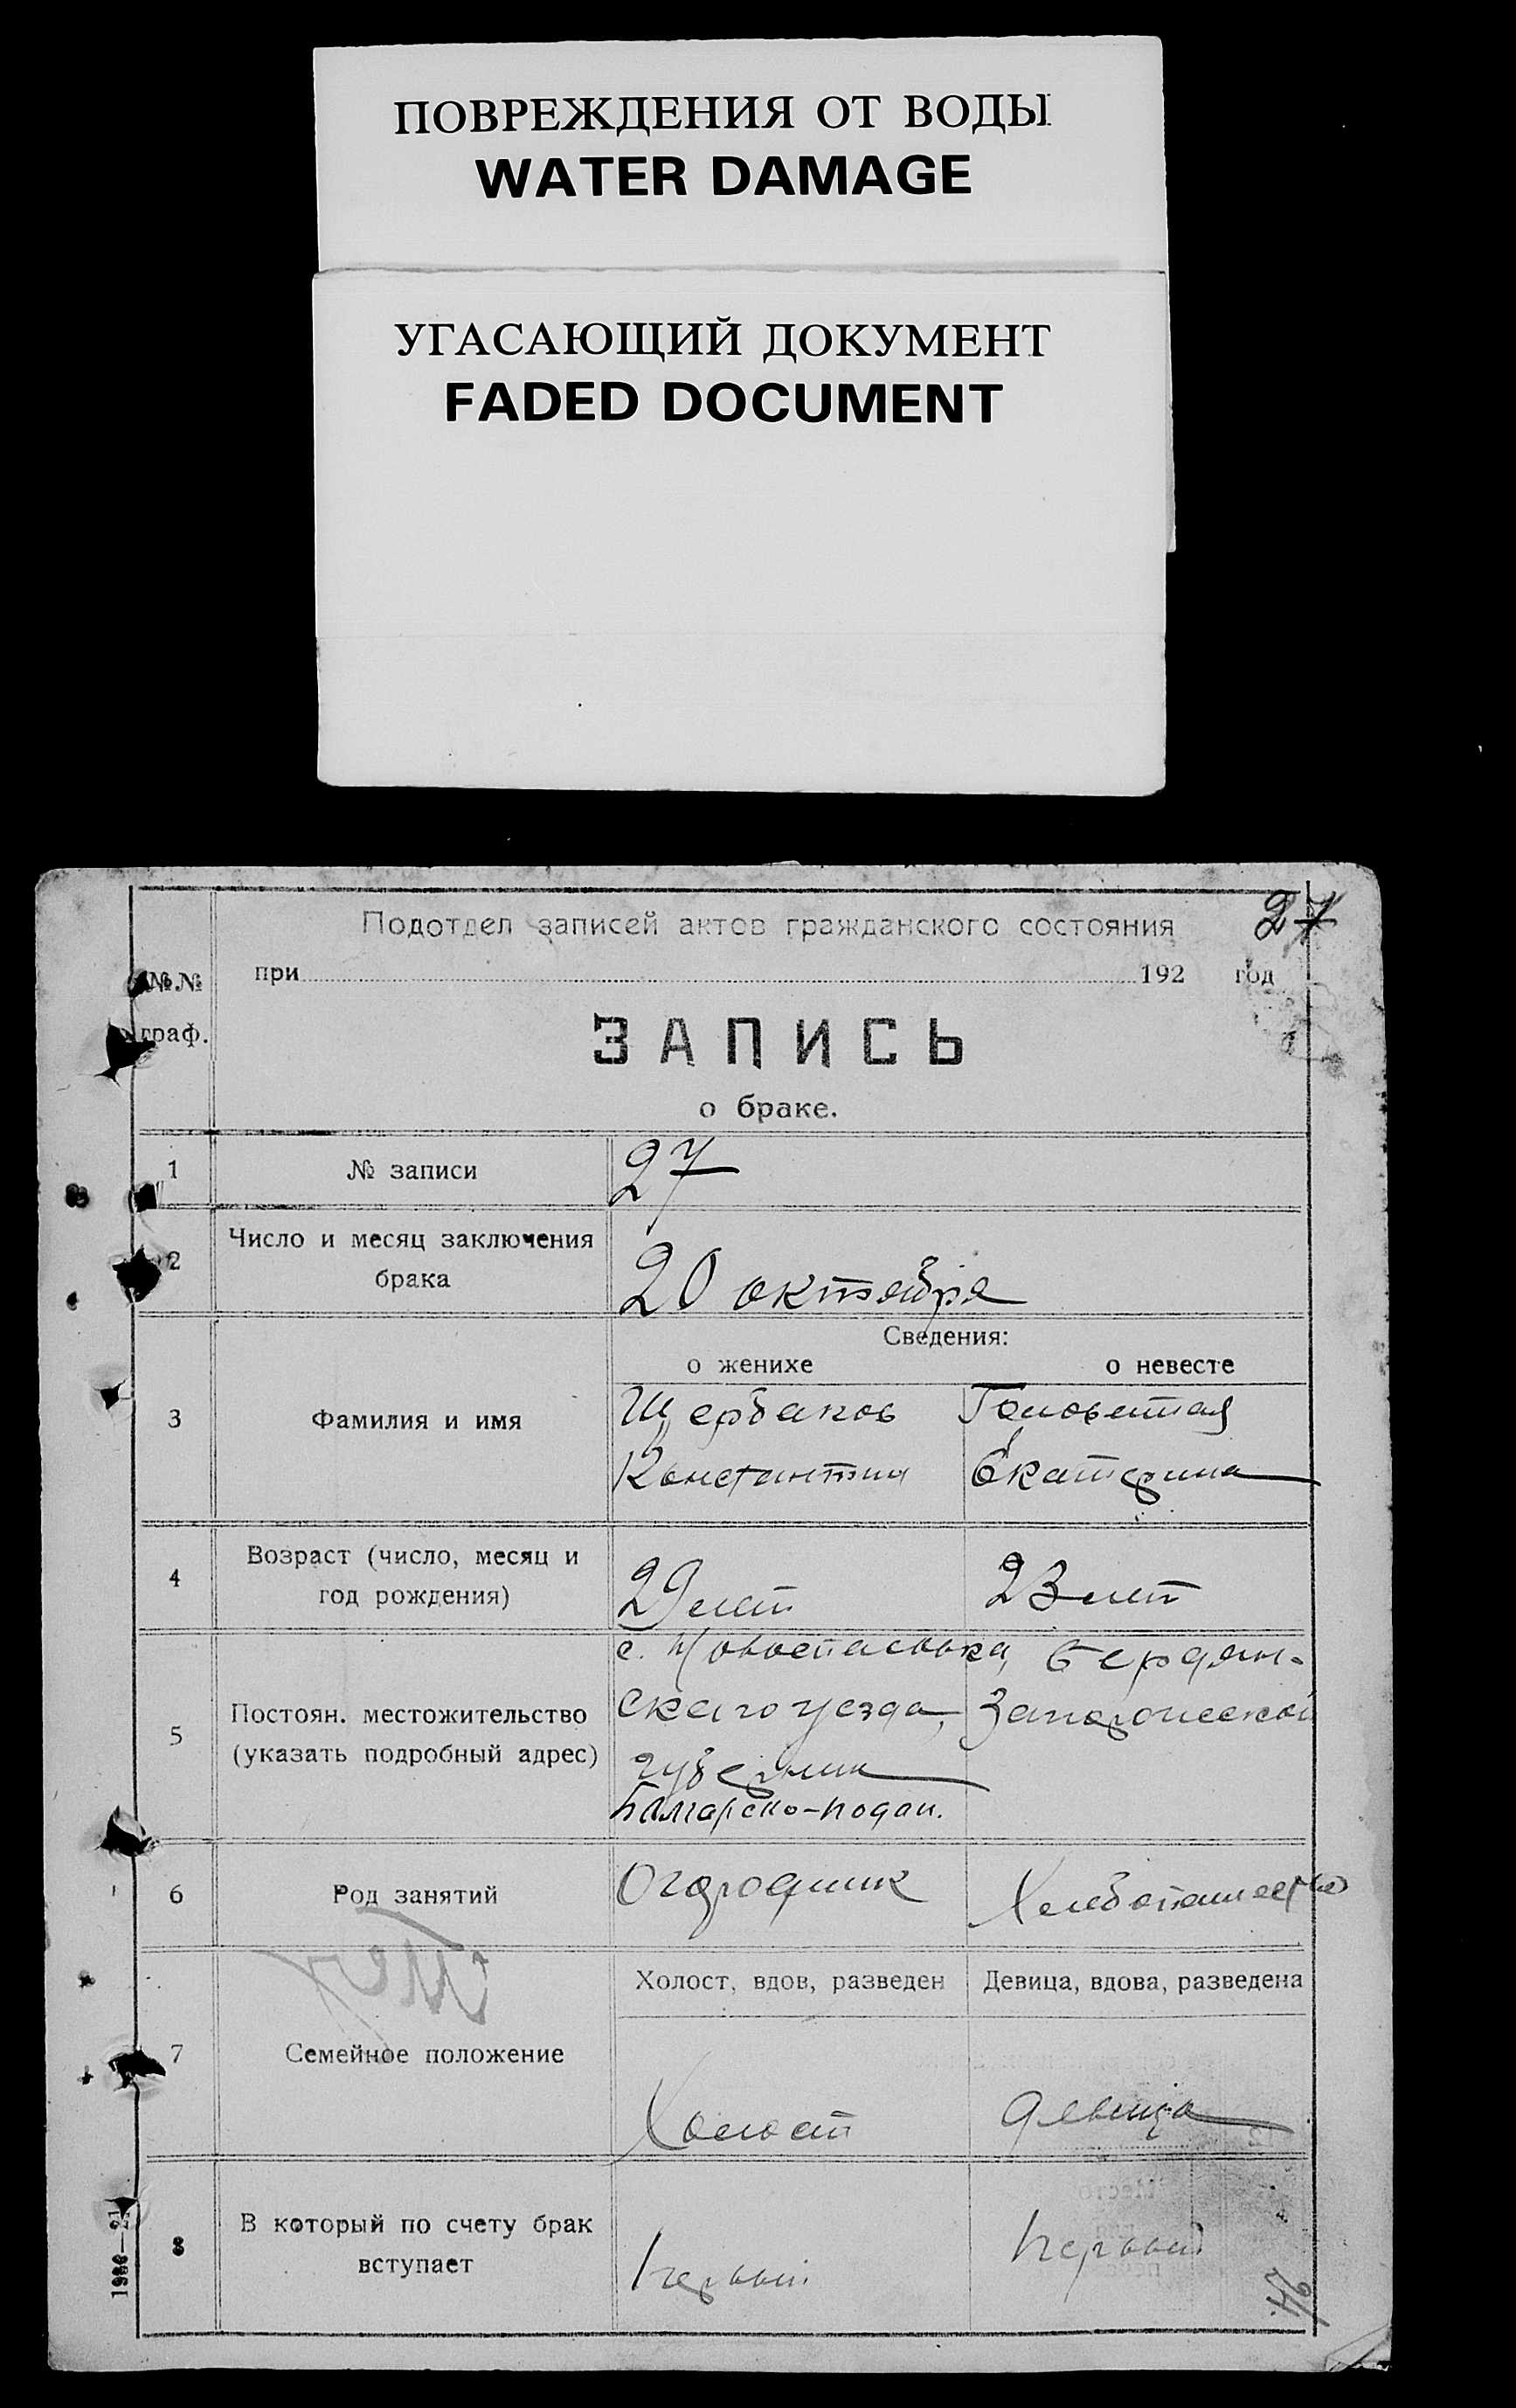 ПОВРЕЖДЕНИЯ ОТ ВОДЫ
WATER DAMAGE
УГАСАЮЩИЙ ДОКУМЕНТ
FADED DOCUMENT
27
Подотдел записей актов гражданского состояния
при 192 год
№№
граф.
ЗАПИСЬ
о браке.
1 № записи 27
2 Число и месяц заключения
брака
20 октября
Сведения:
о женихе о невесте
3 Фамилия и имя
Щербаков
Константин Екатерина
4 Возраст (число, месяц и
год рождения)
29 лет 23 лет
5 Постоян. местожительство
(указать подробный адрес)
с. Новоспасовка, Бердян-
скаго уезда, Запорожской
губернии
Болгарско-подан.
6 Род занятий
Огородник
7 Семейное положение
Холост, вдов, разведен Девица, вдова, разведена
Холост девица
8 В который по счету брак
вступает
первый первый